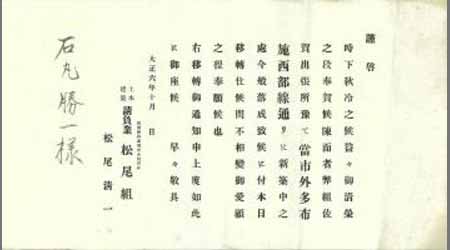 謹啓
時下秋冷之候益々御清榮
之段奉賀候陳而者弊組佐
賀出張所豫て當市外多布
施西部線通りに新築中之
處今般落成致候に付本日
移轉仕候間不相變御愛顧
之程奉願候也
右移轉御通知申上度如此
に御座候 早々敬具
大正六年十月 日
土木建築請負業 松尾組
松尾清一
石丸勝一様